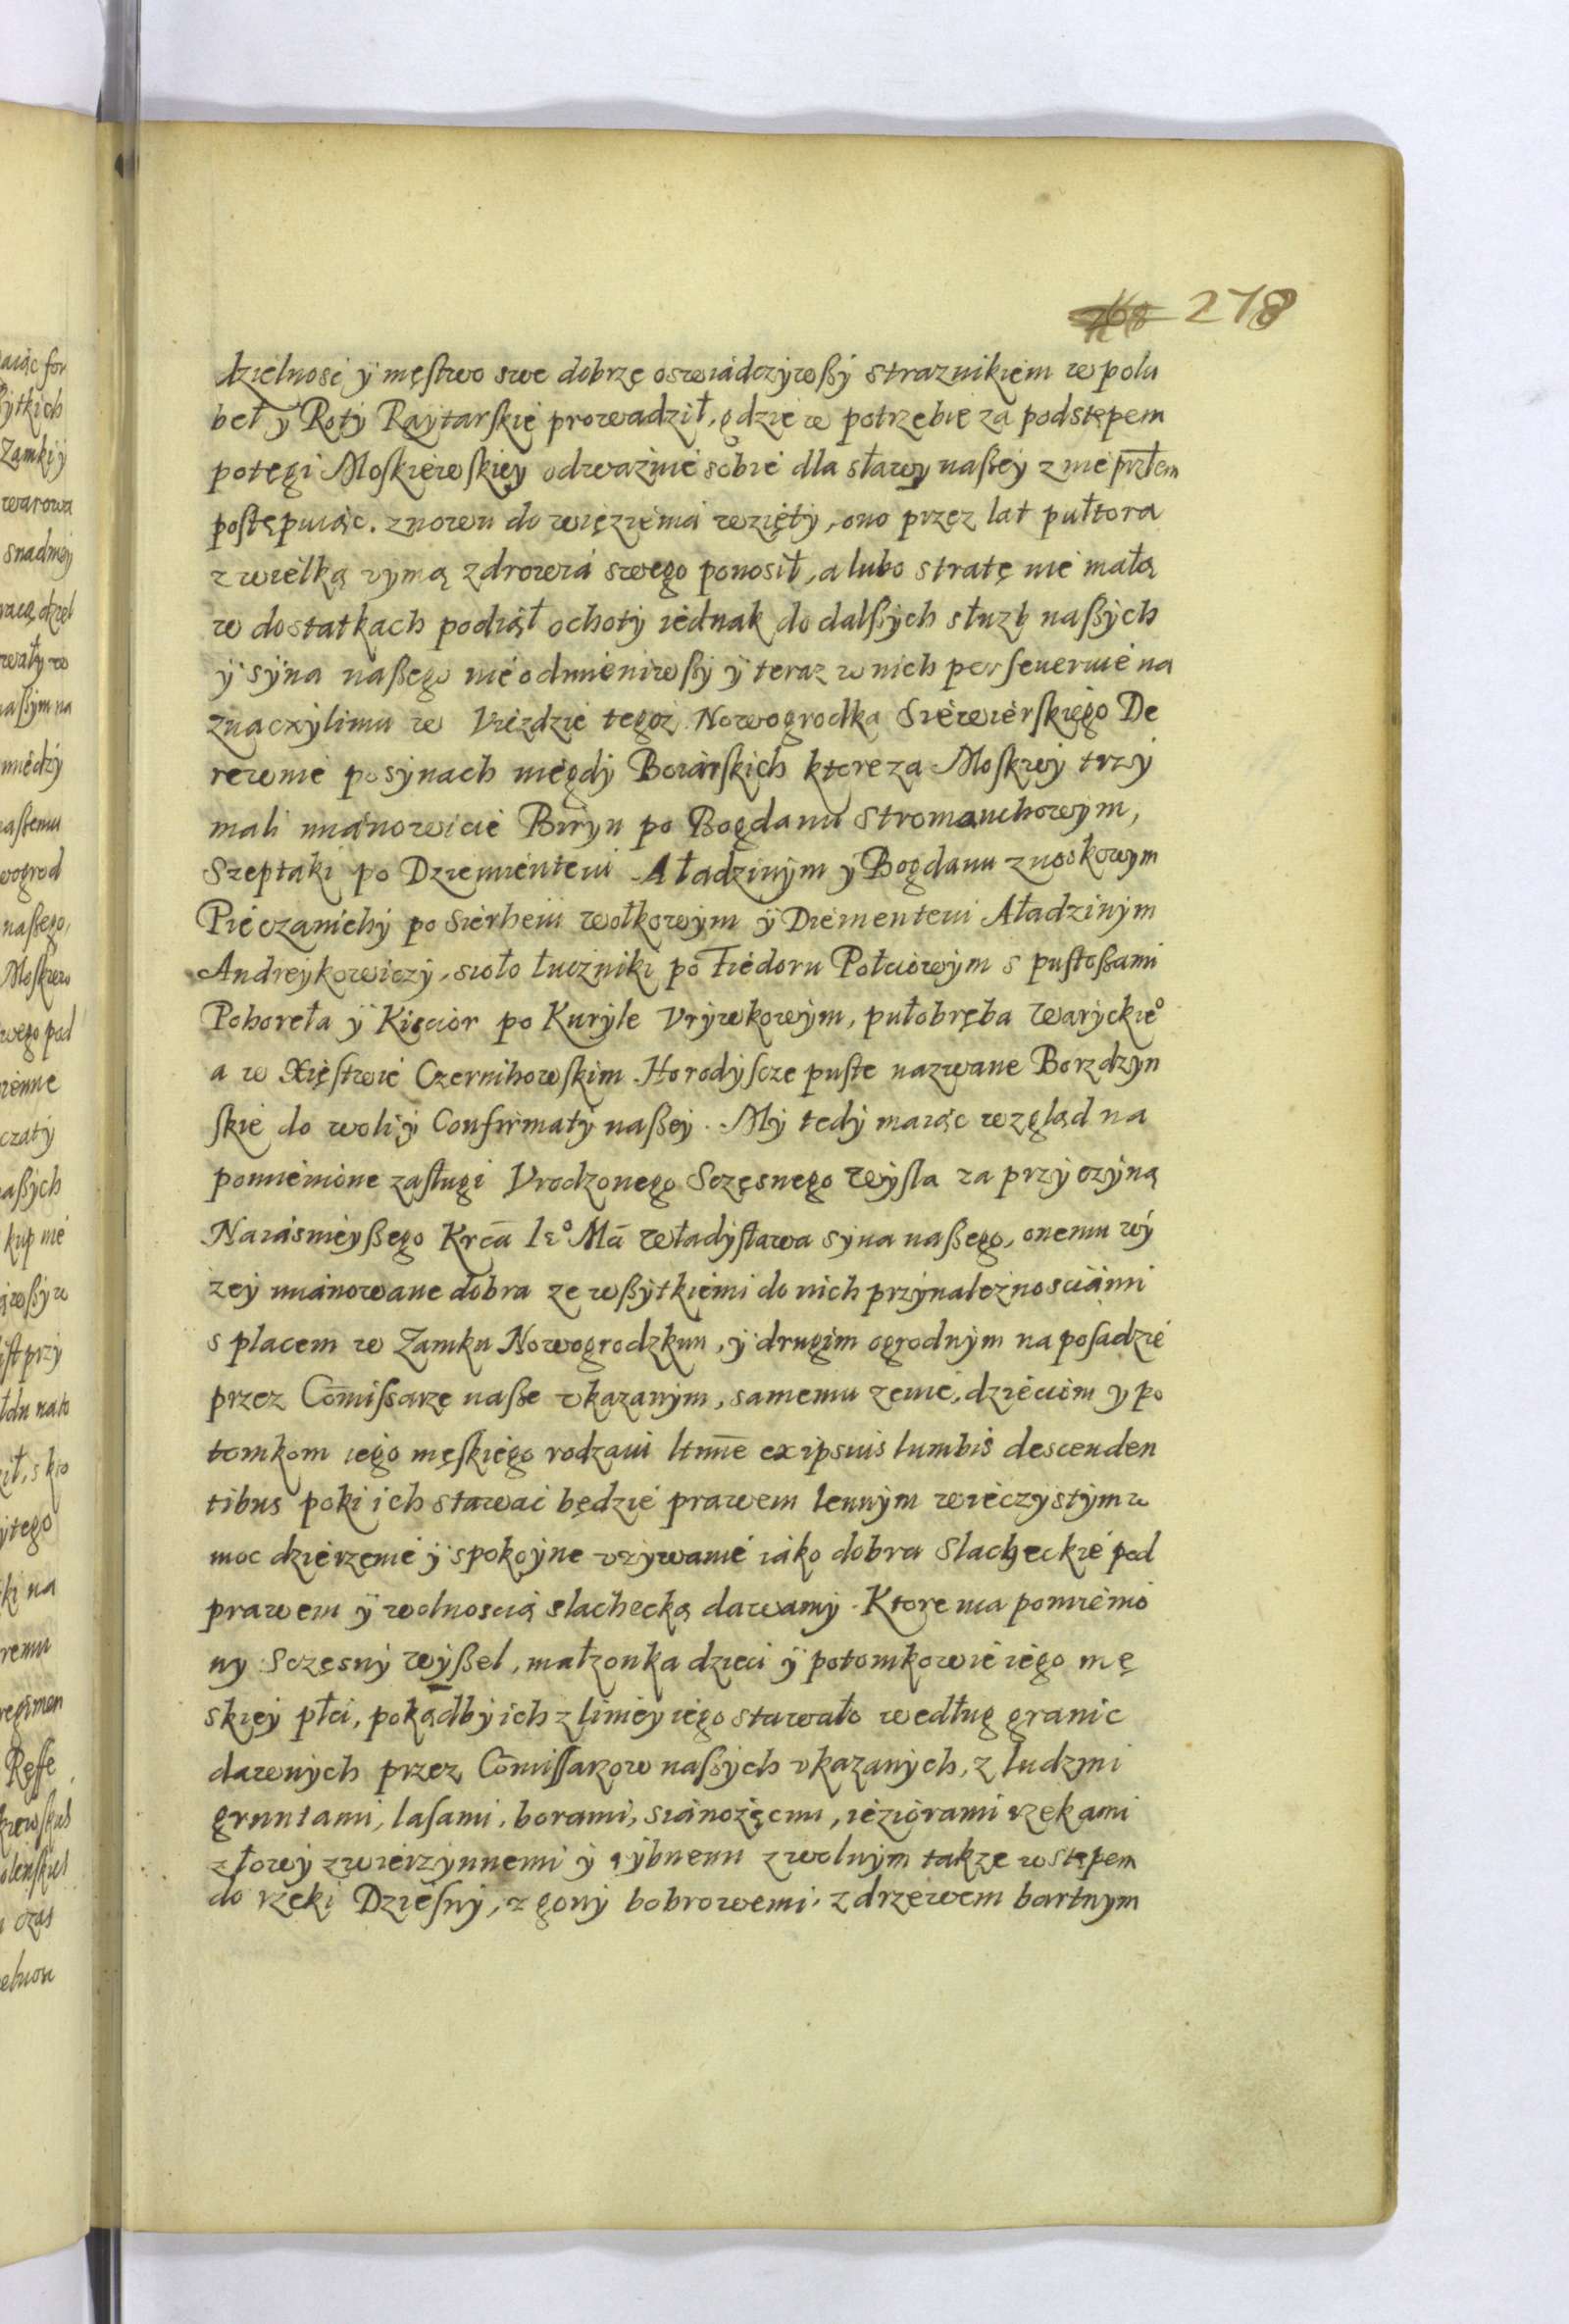 278
dzielnosć ÿ męstwo swe dobrzę oswiadczÿwßÿ straznikiem w polu
beł ÿ Rotÿ Raÿtarskie prowadził, gdzie w potrzebie za podstępem
potęgi Moskiewskieÿ odwaznie sobie dla sławy naßeÿ z nie przłem
postępuiąc. znowu do więzienia wziętÿ, ono przez lat pułtora
z wielką vymą zdrowia swego ponosił, a lubo stratę nie małą
w dostatkach podiął ochotÿ iednak do dalßÿch służb naßÿch
ÿ sÿna naßego nieodmieniwßÿ ÿ teraz w nich perseueruie na
znaczÿlimu w Viezdzie tegoż Nowogrodka Siewierskiego De
rewnie po sÿnach niegdÿ Boiarskich ktore za Moskwÿ trzÿ
mali mianowicie Biryn po Bogdanu Stromauchowÿm,
Szeptaki po Dziemienteiu Aładzinÿm ÿ Bogdanu znoskowym
Pieczanichÿ po Sierheiu wołkowÿm ÿ Diementeiu Aładzinÿm
Andreÿkowiczÿ, sioło łuczniki po Fiedoru Połciowÿm s pustoßami
Pohoreła ÿ Kiscior po Kurÿle Vrÿwkowÿm, pułobręba Warÿckie°
a w Xięstwie Czernihowskim Horodÿscze puste nazwane Borzdzyn
skie do woli ÿ Confirmatÿ naßeÿ. Mÿ tedÿ maiąc wzgląd na
pomienione zasługi Vrodzonego Sczęsnego Wÿsla za przÿczÿną
Naiásnieÿßego Krca Ie° Mci Władÿsława sÿna naßego, onemu wÿ
zeÿ mianowane dobra ze wßÿtkiemi do nich przÿnależnosciami
s placem w Zamku Nowogrodzkim, ÿ drugim ogrodnÿm na posadzie
przez Comissarzę naße vkazanÿm, samemu zenie, dzieciom y po
tomkom iego męskiego rodzaiu ltmne ex ipsius lumbis descenden
tibus poki ich stawać będzie prawem lennÿm wieczÿstÿm w
moc dzierzenie ÿ spokoÿne vzÿwanie iako dobra Slacheckie pod
prawem ÿ wolnoscią slachecką dawamÿ. Ktore ma pomienio
ny Sczęsnÿ wÿßel, małzonka dzieci ÿ potomkowie iego mę
skieÿ płci, pokądbÿ ich z linieÿ iego stawało według granic
dawnÿch przez Comissarzow naßÿch vkazanÿch, z ludzmi
gruntami, lasami, borami, sianożęcmi, ieziorami rzekami
z łowÿ zwierzÿnnemi ÿ rÿbnemi z wolnÿm takze wstępem
do rzeki Dziesnÿ, z gonÿ bobrowemi, z drzewem bartnym